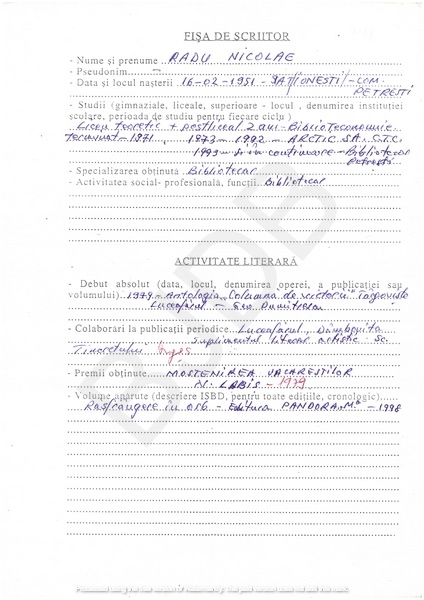 FIŞA DE SCRIITOR
- Nume şi prenume RADU NICOLAE
- Pseudonim
- Data şi locul naşterii 16-02-1951-SAT IONESTI-COM.
PETRESTI
- Studii (gimnaziale, liceale, superioare - locul, denumirea instituţiei
şcolare, perioada de studiu pentru fiecare ciclu)
Liceu teoretic + postliceal 2 ani - Biblioteconomie
terminat - 1971. 1973 - 1992 - ARCTIC SA. C.T.C.
1993 - si in continuare - Bibliotecar
Petresti
- Specializarea obţinută Bibliotecar
- Activitatea social-profesională, funcţii Bibliotecar
ACTIVITATE LITERARĂ
- Debut absolut (data, locul, denumirea operei, a publicaţiei sau
volumului) 1979 - Antologia "Columna de scriitori" Târgoviste
Luceafărul - Geo Dumitrescu
- Colaborări la publicaţii periodice Luceafărul, Dâmboviţa
Suplimentul literar artistic Sc.
Tineretului
- Premii obţinute MOSTENIREA VACARESTILOR
N. LABIS - 1979
- Volume apărute (descriere ISBD, pentru toate ediţiile, cronologic)
Rasfrângere in orb - Editura PANDORA-M - 1998
BJDB